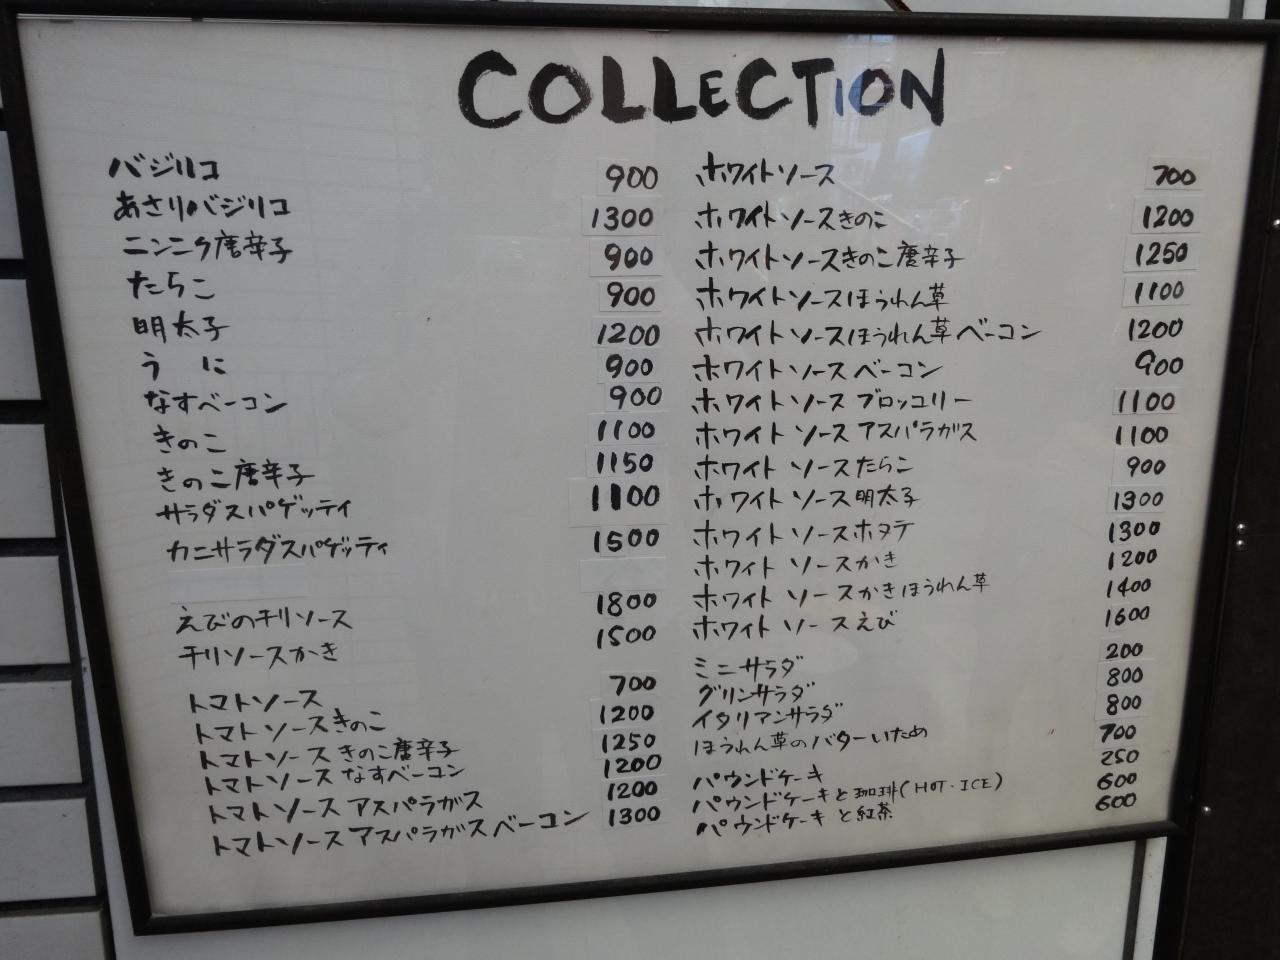 COLLECTION
バジリコ 900
あさりバジリコ 1300
ニンニク唐辛子 900
たらこ 900
明太子 1200
うに 900
なすベーコン 900
きのこ 1100
きのこ唐辛子 1150
サラダスパゲッティ 1100
カニサラダスパゲッティ 1500
えびのチリソース 1800
チリソースかき 1500
トマトソース 700
トマトソースきのこ 1200
トマトソースきのこ唐辛子 1250
トマトソースなすベーコン 1200
トマトソースアスパラガス 1200
トマトソースアスパラガスベーコン 1300
ホワイトソース 700
ホワイトソースきのこ 1200
ホワイトソースきのこ唐辛子 1250
ホワイトソースほうれん草 1100
ホワイトソースほうれん草ベーコン 1200
ホワイトソースベーコン 900
ホワイトソースブロッコリー 1100
ホワイトソースアスパラガス 1100
ホワイトソースたらこ 900
ホワイトソース明太子 1300
ホワイトソースホタテ 1300
ホワイトソースかき 1200
ホワイトソースかきほうれん草 1400
ホワイトソースえび 1600
ミニサラダ 200
グリンサラダ 800
イタリアンサラダ 800
ほうれん草のバターいため 700
パウンドケーキ 250
パウンドケーキと珈琲(HOT・ICE) 600
パウンドケーキと紅茶 600